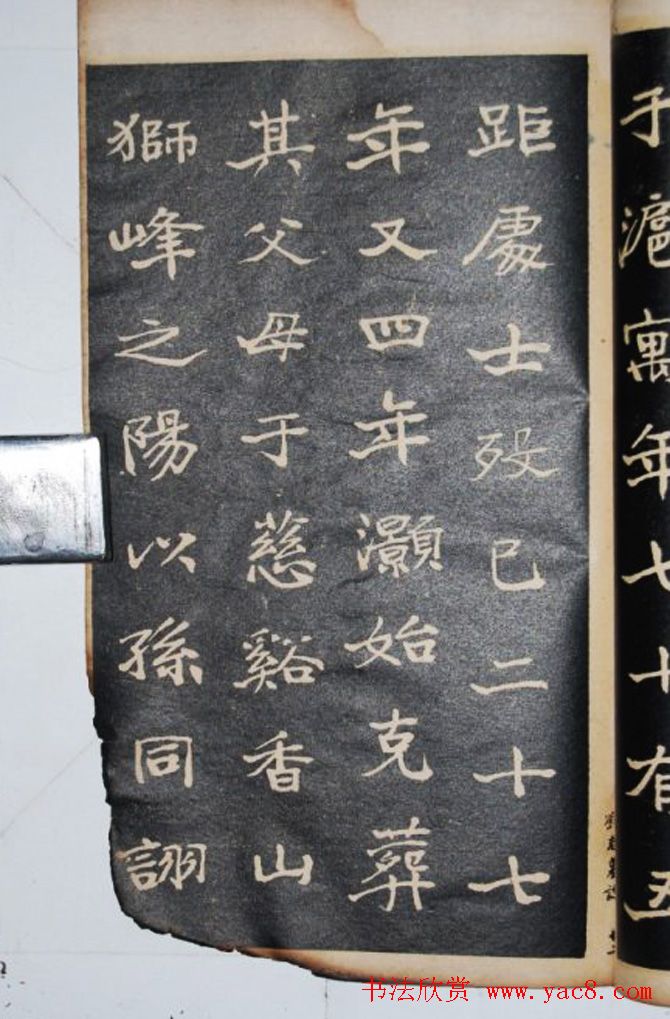 于滬寓年七十有五
距處士歿已二十七
年又四年灝始克葬
其父母于慈谿香山
獅峰之陽以孫同詡
书法欣赏 www.yac8.com